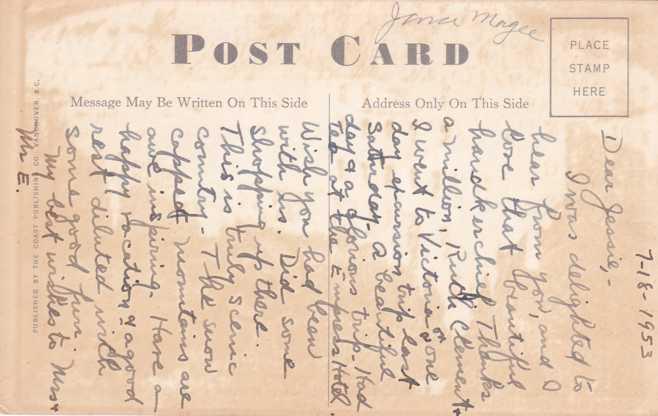 Janice Magee
POST CARD
PLACE
STAMP
HERE
Message May Be Written On This Side
Address Only On This Side
PUBLISHED BY THE COAST PUBLISHING CO. VANCOUVER, B.C.
7-18-1953
Dear Jessie,-
I was delighted to
hear from you, and I
love that beautiful
handkerchief. Thanks
a million. Ruth Clement +
I went to Victoria on a one
day excursion trip last
Saturday. a beautiful
day & a glorious trip. Had
Tea at the Empress Hotel.
Wish you had been
with us. Did some
shopping up there.
This is truly scenic
country - The snow
capped mountains are
awe inspiring. Have a
happy vacation & a good
rest diluted with
some good fun.
My best wishes to Mrs +
Mr E.